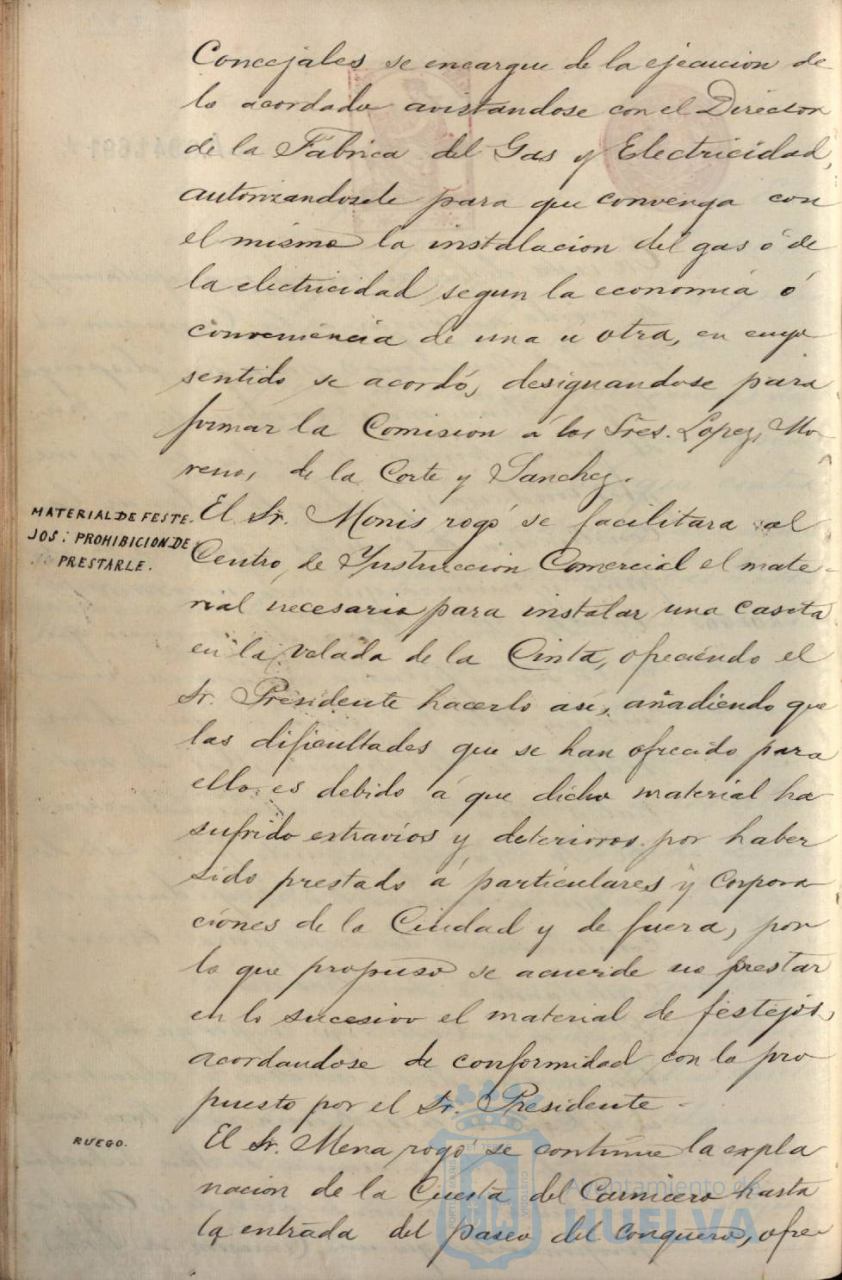 Concejales se encargue de la ejecucion de
lo acordado avistandose con el Director
de la Fabrica del Gas y Electricidad,
autorizandosele para que convenga con
el mismo la instalacion del gas ó de
la electricidad segun la economia ó
conveniencia de una u otra, en cuyo
sentido se acordó, designandose para
formar la Comision á los Sres. Lopez, Mo-
reno, de la Corte y Sanchez.
MATERIAL DE FESTE-
JOS: PROHIBICION DE
PRESTARLE.
El Sr. Monis rogó se facilitara al
Centro de Ynstruccion Comercial el mate-
rial necesario para instalar una caseta
en la velada de la Cinta, ofreciendo el
Sr. Presidente hacerlo así, añadiendo que
las dificultades que se han ofrecido para
ello es debido á que dicho material ha
sufrido extravios y deterioros por haber
sido prestado á particulares y Corpora
ciones de la Ciudad y de fuera, por
lo que propuso se acuerde no prestar
en lo sucesivo el material de festejos,
acordandose de conformidad con lo pro
puesto por el Sr. Presidente -
RUEGO.
El Sr. Mena rogó se continúe la expla
nacion de la Cuesta del Carnicero hasta
la entrada del paseo del conquero, ofre-
Ayuntamiento de
HUELVA